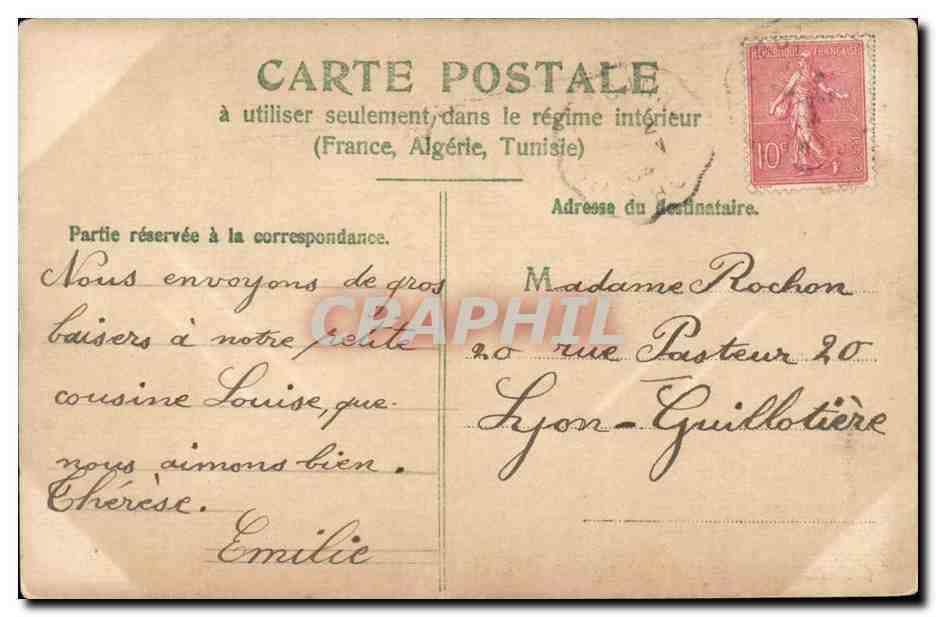 CARTE POSTALE
à utiliser seulement dans le régime intérieur
(France, Algérie, Tunisie)
RÉPUBLIQUE FRANÇAISE
10c
Partie réservée à la correspondance.
Nous envoyons de gros
baisers à notre petite
cousine Louise, que
nous aimons bien.
Thérèse.
Emilie
Adresse du destinataire.
Madame Rochon
20 rue Pasteur 20
Lyon-Guillotière
CPAPHIL